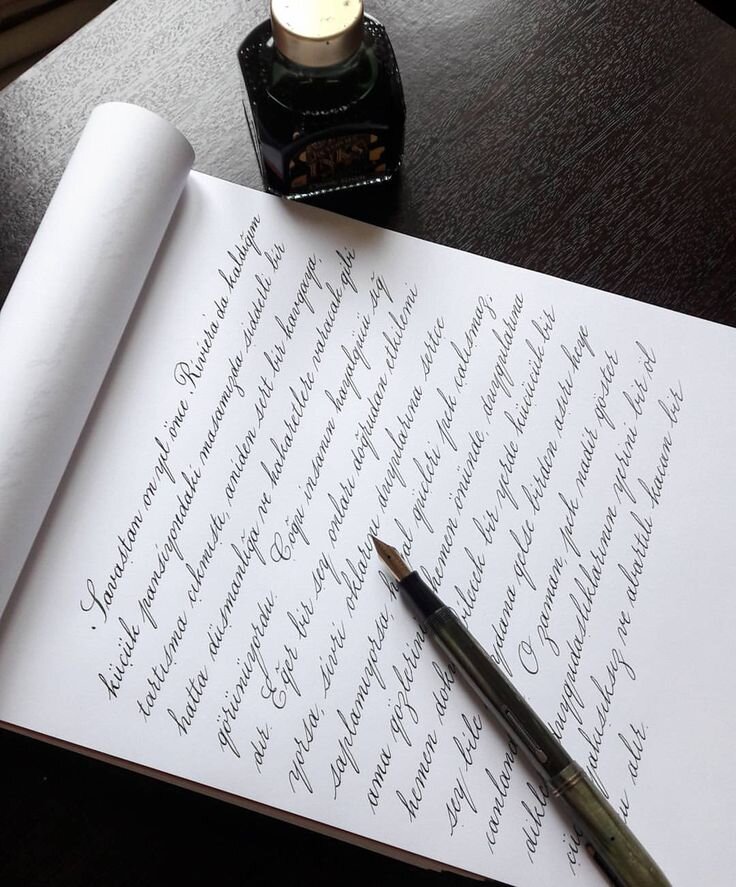 INKS
Savaştan on yıl önce, Riviera'da kaldığım
küçük pansiyondaki masamızda şiddetli bir
tartışma çıkmıştı, aniden sert bir kavgaya,
hatta düşmanlığa ve hakaretlere varacak gibi
görünüyordu. Çoğu insanın hayalgücü sığ
dır. Eğer bir şey onları doğrudan etkilemi
yorsa, sivri oklarını duygularına sertçe
saplamıyorsa, güçleri pek çalışmaz;
ama hemen önünde, duygularına
hemen bir yerde küçücük bir
şey bile gelse birden aşırı heye
O zaman, pek nadir göster
duygudaşlıklarının yerini bir öl
yakışıksız ve abartılı bir
alır.